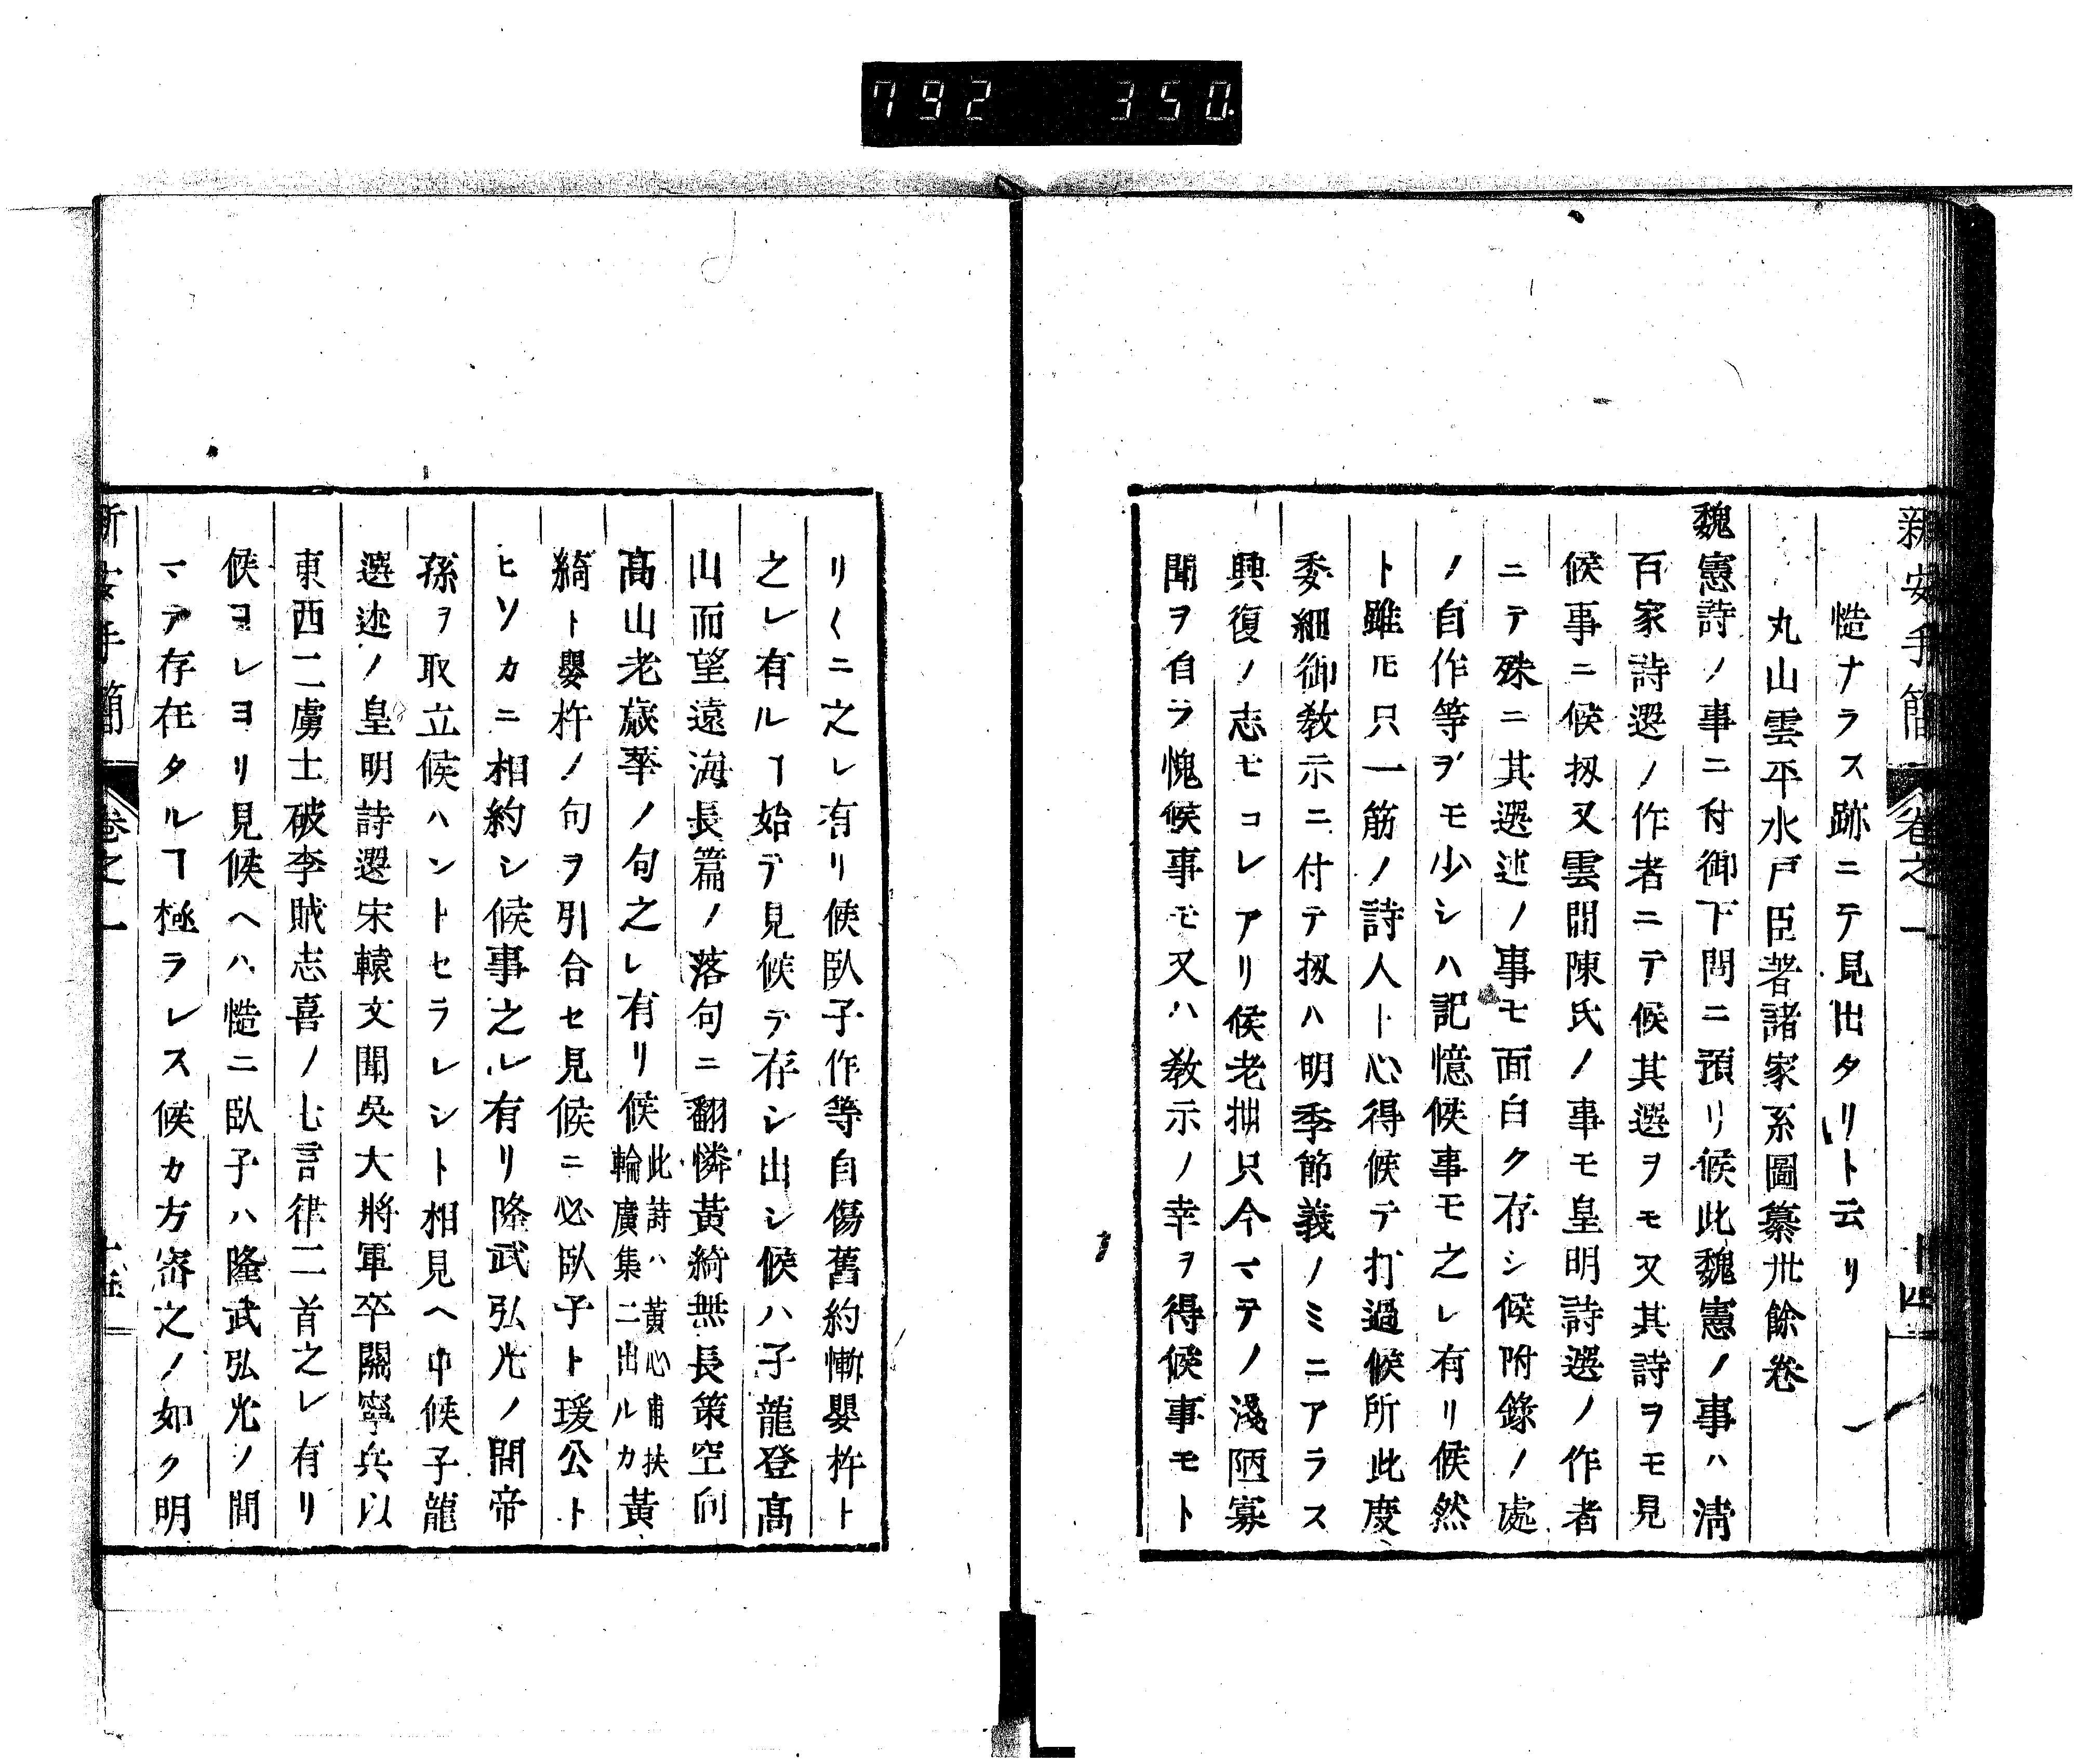 792 350
新安手簡 卷之一 十四
慥ナラス跡ニテ見出タリト云リ
丸山雲平水戸臣著諸家系圖纂卅餘卷
魏憲詩ノ事ニ付御下問ニ預リ候此魏憲ノ事ハ淸
百家詩選ノ作者ニテ候其選ヲモ又其詩ヲモ見
候事ニ候扨又雲間陳氏ノ事モ皇明詩選ノ作者
ニテ殊ニ其選述ノ事モ面白ク存シ候附錄ノ處
ノ自作等ヲモ少シハ記憶候事モ之レ有リ候然
ト雖𪜈只一筋ノ詩人ト心得候テ打過候所此度
委細御敎示ニ付テ扨ハ明季節義ノミニアラス
興復ノ志モコレアリ候老拙只今マテノ淺陋寡
聞ヲ自ラ愧候事モ又ハ敎示ノ幸ヲ得候事モト
リ〱ニ之レ有リ候臥子作等自傷舊約慚嬰杵ト
之レ有ルヿ始テ見候テ存シ出シ候ハ子龍登髙
山而望遠海長篇ノ落句ニ翻憐黃綺無長策空向
髙山老歲華ノ句之レ有リ候此詩ハ黃心甫扶輪廣集ニ出ルカ黃
綺ト嬰杵ノ句ヲ引合セ見候ニ必臥子ト瑗公ト
ヒソカニ相約シ候事之レ有リ隆武弘光ノ間帝
孫ヲ取立候ハントセラレシト相見ヘ申候子龍
選述ノ皇明詩選宋轅文聞吳大將軍卒關寧兵以
東西二虜士破李賊志喜ノ七言律二首之レ有リ
候ヨレヨリ見候ヘハ慥ニ臥子ハ隆武弘光ノ間
マテ存在タルヿ極ラレス候カ方密之ノ如ク明
新安手簡 卷之一 十五